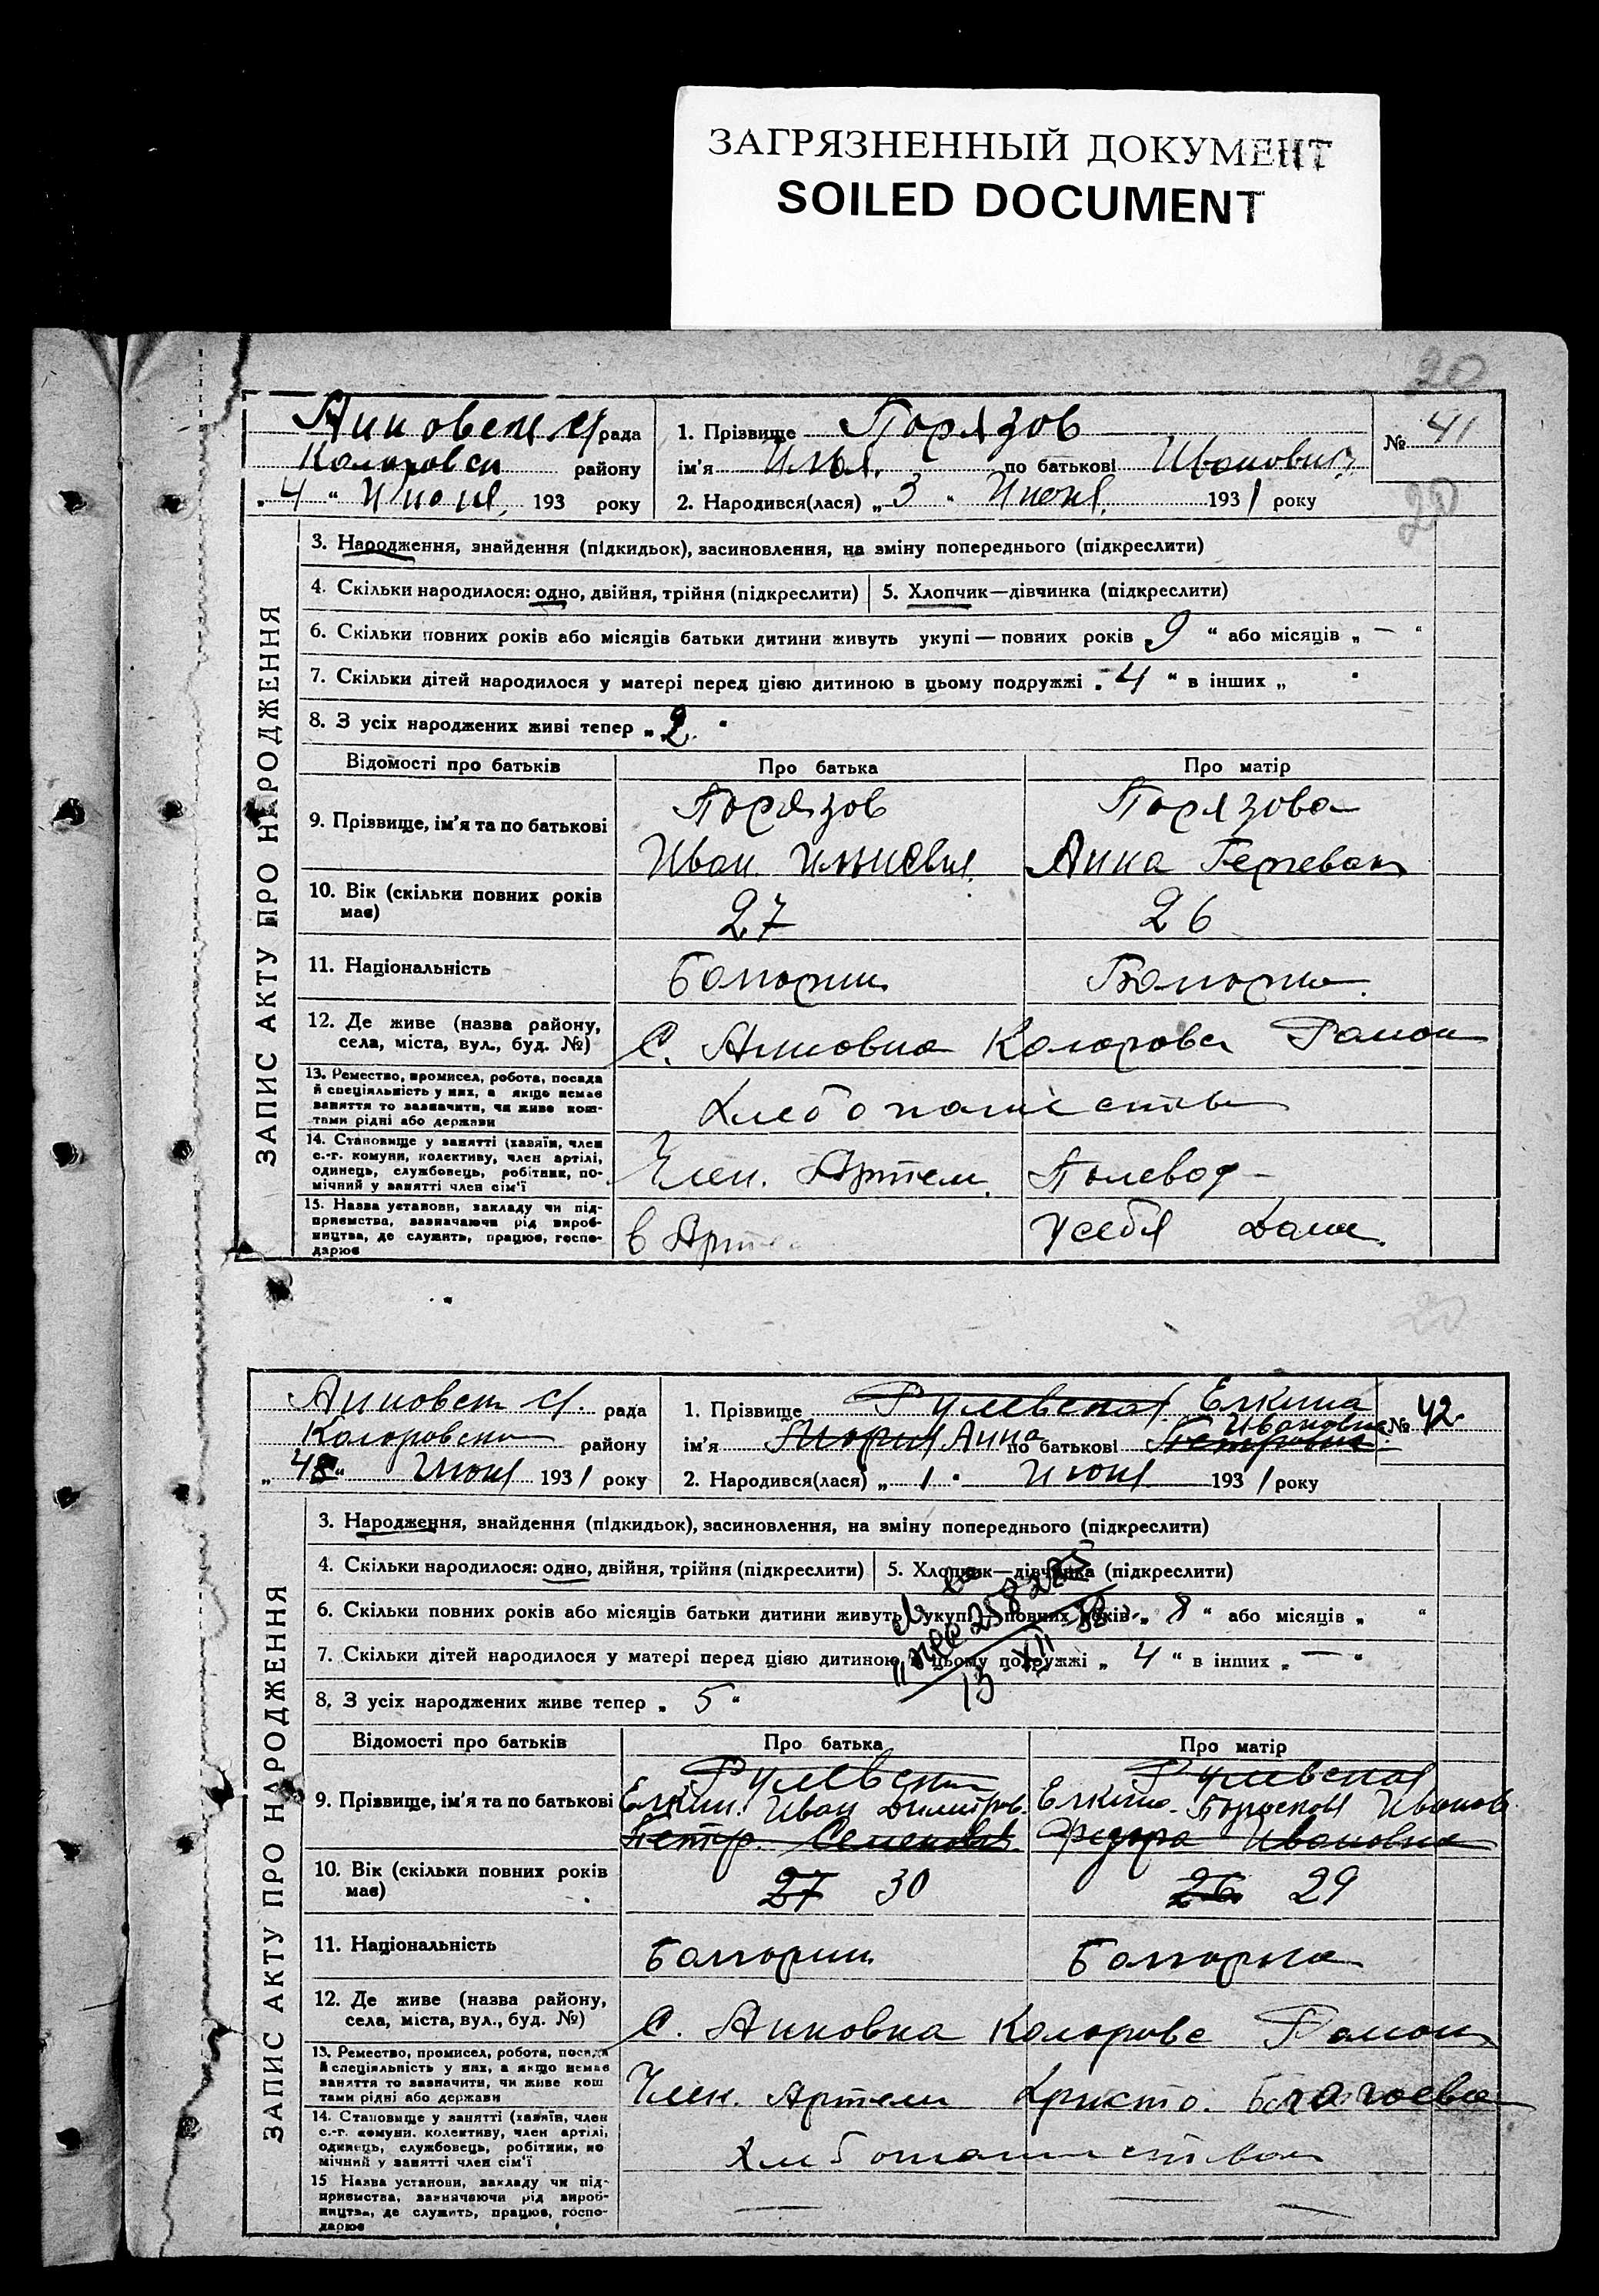 ЗАГРЯЗНЕННЫЙ ДОКУМЕНТ
SOILED DOCUMENT
20
Анновск с/рада
1. Прізвище Порязов
№ 41
Коларовск району
ім'я Илья по батькові Иванович
„4“ Июня 193 року
2. Народився(лася) „3“ Июня 1931 року
20
ЗАПИС АКТУ ПРО НАРОДЖЕННЯ
3. Народження, знайдення (підкидьок), засиновлення, на зміну попереднього (підкреслити)
4. Скільки народилося: одно, двійня, трійня (підкреслити) 5. Хлопчик—дівчинка (підкреслити)
6. Скільки повних років або місяців батьки дитини живуть укупі — повних років „9“ або місяців „—“
7. Скільки дітей народилося у матері перед цією дитиною в цьому подружжі „4“ в інших „ “
8. З усіх народжених живі тепер „2“
Відомості про батьків Про батька Про матір
9. Прізвище, ім'я та по батькові
Порязов Порязова
Иван Ильевич Анна
10. Вік (скільки повних років має)
27 26
11. Національність
Болгарин Болгарка
12. Де живе (назва району,
села, міста, вул., буд. №)
С. Анновка Коларовск Район
13. Ремество, промисел, робота, посада
й спеціяльність у них, а якщо немає
заняття то зазначити, чи живе кош-
тами рідні або держави
Хлебопашество
14. Становище у занятті (хазяїн, член
с.-г. комуни, колективу, член артілі,
одинець, службовець, робітник, по-
мічний у занятті член сім'ї
Член. Артели. Полевод —
15. Назва установи, закладу чи під-
приємства, зазначаючи рід вироб-
ництва, де служить, працює, госпо-
дарює
в Арте у себя Дома.
20
Анновск с/. рада
1. Прізвище Рулевская Елкина
№ 42.
Коларовск району
ім'я Мария Анна по батькові Петровна Ивановна
„48“ Июня 1931 року
2. Народився(лася) „1“ Июня 1931 року
ЗАПИС АКТУ ПРО НАРОДЖЕННЯ
3. Народження, знайдення (підкидьок), засиновлення, на зміну попереднього (підкреслити)
4. Скільки народилося: одно, двійня, трійня (підкреслити) 5. Хлопчик—дівчинка (підкреслити)
6. Скільки повних років або місяців батьки дитини живуть укупі — повних років „8“ або місяців „ “
7. Скільки дітей народилося у матері перед цією дитиною в цьому подружжі „4“ в інших „—“
8. З усіх народжених живе тепер „5“
13 XII
Відомості про батьків Про батька Про матір
9. Прізвище, ім'я та по батькові
Рулевский Рулевская
Елкин. Иван Димитров. Елкина Иванов
Петр. Семенович Федора Ивановна
10. Вік (скільки повних років має)
27 30 26 29
11. Національність
Болгарин Болгарка
12. Де живе (назва району,
села, міста, вул., буд. №)
С. Анновка Коларовс Район
13. Ремество, промисел, робота, посада
й спеціяльність у них, а якщо немає
заняття то зазначити, чи живе кош
тами рідні або держави
Член. Артели Христо. Благоева
14. Становище у занятті (хазяїн, член
с.-г. комуни, колективу, член артілі,
одинець, службовець, робітник, по
мічний у занятті член сім'ї
Хлебопашество
15 Назва установи, закладу чи під-
приємства, зазначаючи рід вироб-
ництва, де служить, працює, госпо-
дарює